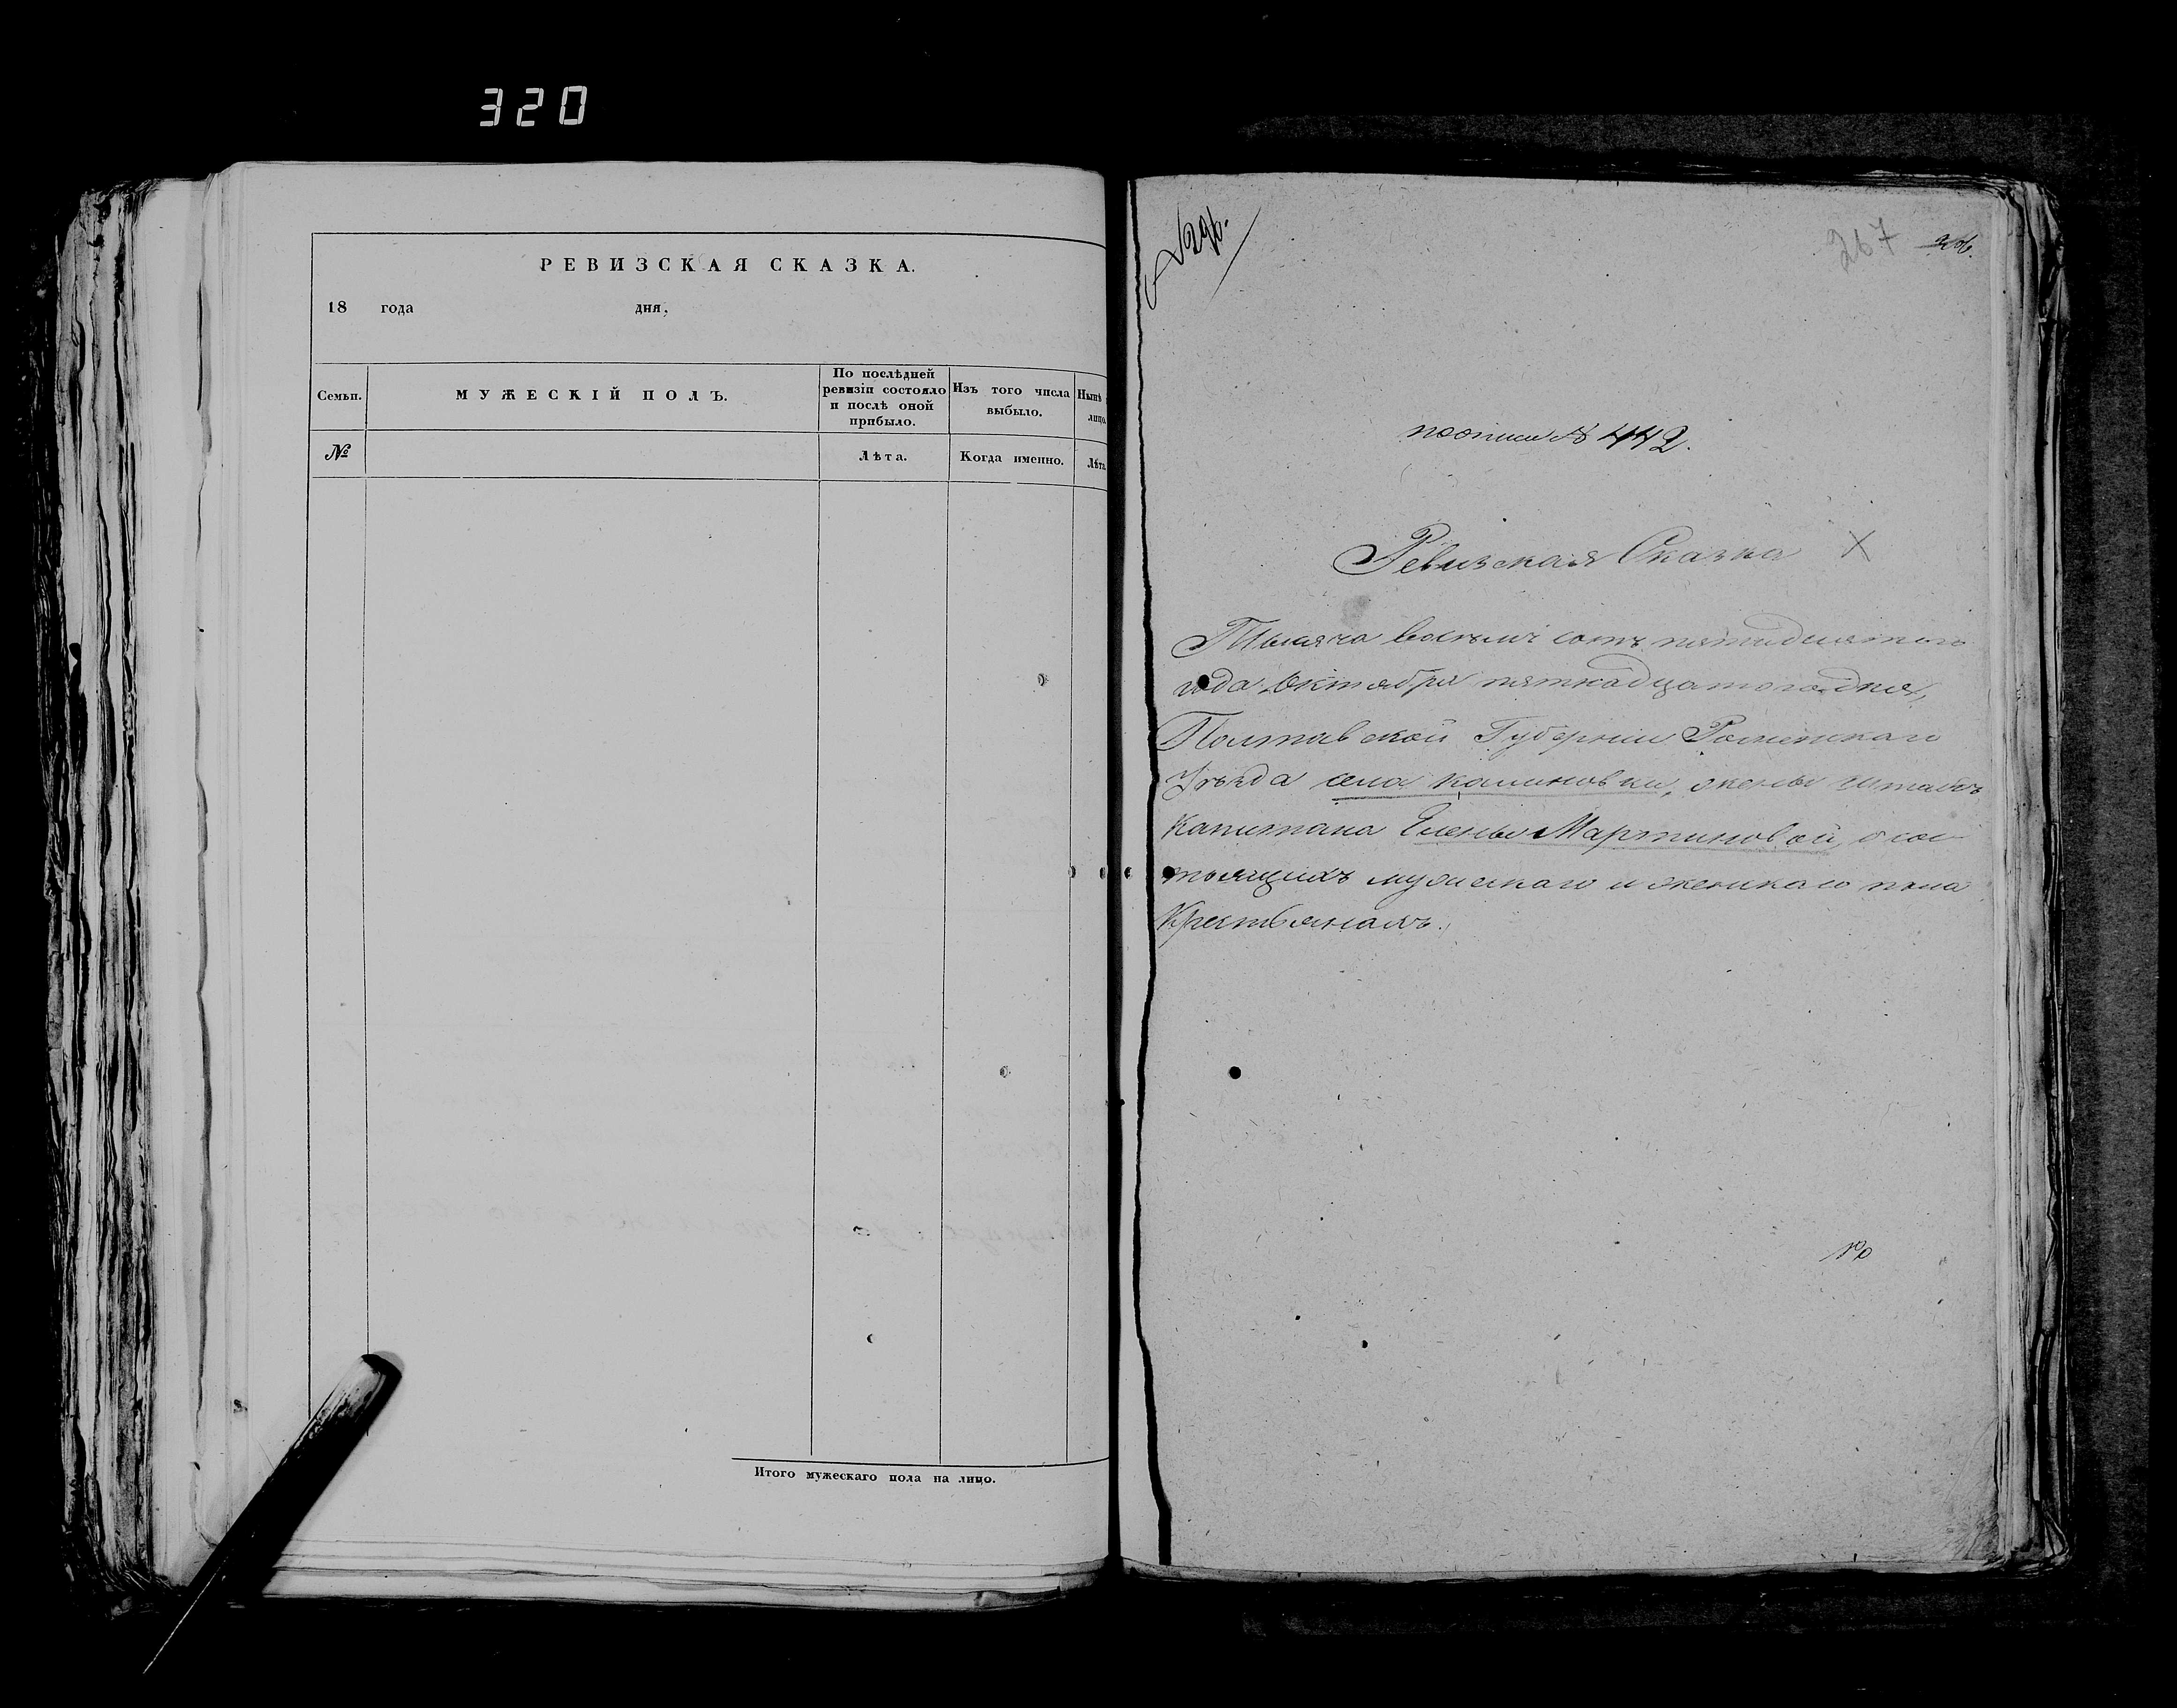 320
РЕВИЗСКАЯ СКАЗКА.
18 года дня,
Семьи.
МУЖЕСКІЙ ПОЛЪ.
По послѣдней
ревизіи состояло
и послѣ оной
прибыло.
Изъ того числа
выбыло.
Нынѣ
лицо.
№
Лѣта.
Когда именно.
Лѣта
Итого мужескаго пола на лицо.
267
по описи № 442.
Ревизская Сказка X
Тысяча восемь сотъ пятидесятого
года Октября пятнадцатого дня,
Полтавской Губерніи Роменскаго
Уѣзда села Калиновки, жены Штабсъ
Капитана Елены Мартиновой, о сос
тоящихъ мужескаго и женскаго пола
Крестьянахъ.